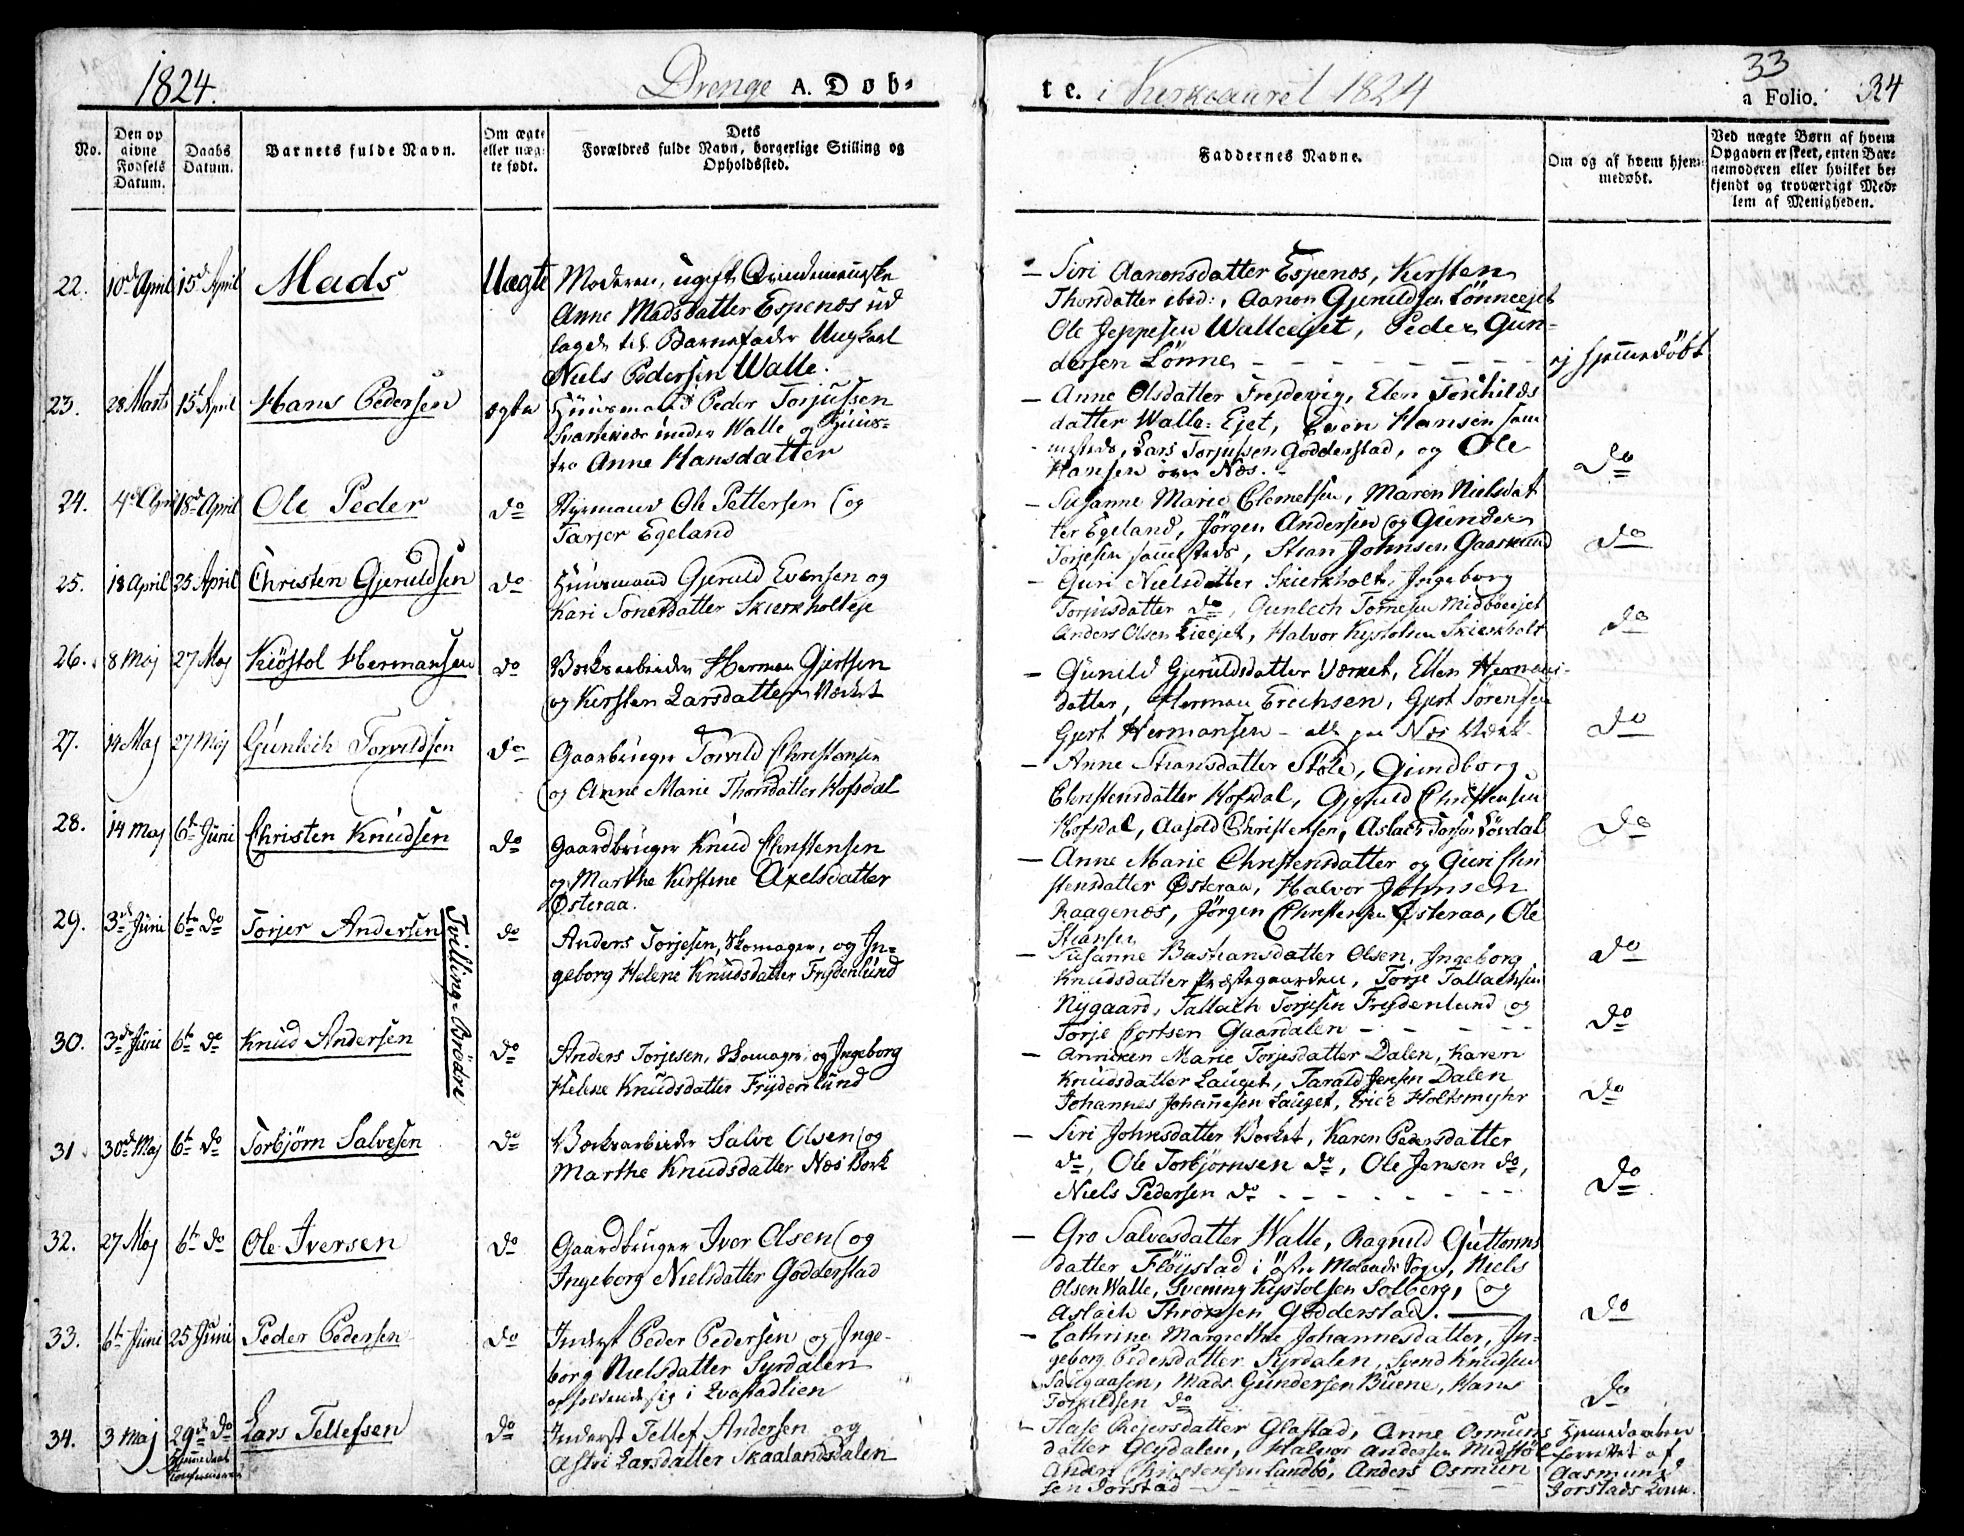 1824.
Drenge A. Døb-
te. i Kirkeaaret 1824
33
a Folio. 34
No.
Den op
givne
Fødsels
Datum.
Daabs
Datum.
Barnets fulde Navn.
Om ægte
eller uæg-
te født.
Dets
Forældres fulde Navn, borgerlige Stilling og
Opholdssted.
Faddernes Navne.
Om og af hvem hjem-
medøbt.
Ved uægte Børn af hvem
Opgaven er skeet, enten Bar-
nemoderen eller hvilket be-
kjendt og troværdigt Med-
lem af Menigheden.
22. 10d April 15d April Mads Uægte Moderen, ugift
Anne Madsdatter Espenes ud
lagde til Barnefader Ungkarl
Niels Pedersen Walle.
– Siri Aanonsdatter Espenes, Kirsten
Thorsdatter ibid:, Aanon Gjeruldsen Lønneejet
Ole Jeppesen Walleejet, Peder Gun-
dersen Lønne – – –
ej hjemmedøbt
23. 28 Marts 15d April Hans Pedersen ægte Huusmand Peder Torjussen
under Walle og Huus-
tro Anne Hansdatter
– Anne Olsdatter Frejdevig, Elen Torkilds
datter Walle-Ejet, Even Hansen sam
mesteds, Lars Torjussen Godderstad, og Ole
Hansen øvre Næs. –
Do
24. 4d April 18d April Ole Peder do Styrmand Ole Pettersen og
Tarjer Egeland
– Susanne Marie Clemetsen, Maren Nielsdat
ter Egeland, Jørgen Andersen og Gunder
Torjesen sammesteds, Stian Johnsen Gaaslund
Do
25. 18 April 25 April Christen Gjeruldsen do Huusmand Gjeruld Evensen og
Kari Tonesdatter Skierkholteje
– Guri Nielsdatter Skierkholt, Ingeborg
Torjusdatter do, Gunlech Tornesen Midbøeejet
Anders Olsen Lieejet, Halvor Kistolsen Skierkholt
Do
26. 8 Maj 27 Maj Kiøstol Hermansen do Værksarbeider Herman Gjertsen
og Kirsten Larsdatter Værket
– Gunild Gjeruldsdatter Værket, Ellen Hermans-
datter, Herman Erichsen, Gjert Sørensen
Gjert Hermansen – alle paa Næs Værk –
Do
27. 14 Maj 27 Maj Gunlech Torvildsen do Gaardbruger Torvild Christensen
og Anne Marie Thorsdatter Hofsdal
– Anne Stiansdatter Støle, Gundborg
Christensdatter Hofsdal, Gjeruld Christensen
Hofsdal, Aasold Christensen, Aslach Torsen Løvdal
Do
28. 14 Maj 6te Juni Christen Knudsen do Gaardbruger Knud Christensen
og Marthe Kirstine Axelsdatter
Østeraa.
– Anne Marie Christensdatter og Guri Chri
stensdatter Østeraa, Halvor Johnsen
Raagenes, Jørgen Christensen Østeraa, Ole
Stiansen
Do
29. 3de Juni 6te do Torjer Andersen do Anders Torjesen, Skomager, og In-
geborg Helene Knudsdatter Frydenlund
Tvilling-Brødre
– Susanne Bastiansdatter Olsen, Ingeborg
Knudsdatter Præstegaarden, Torje Tallachsen
Nygaard, Tallach Torjesen Frydenlund og
Torje Gaardalen – – –
Do
30. 3de Juni 6te do Knud Andersen do Anders Torjesen, Skomager, og Ingeborg
Helene Knudsdatter Frydenlund
– Anneken Marie Torjesdatter Dalen, Karen
Knudsdatter Lauget, Tarald Jensen Dalen
Johannes Johannesen Lauget, Erich Holtsmyhr
Do
31. 30de Maj 6te do Torbjørn Salvesen do Værksarbeider Salve Olsen og
Marthe Knudsdatter Næs Værk
– Siri Johnsdatter Værket, Karen Pedersdatter
do, Ole Torbjørnsen do, Ole Jensen do,
Niels Pedersen do – – –
Do.
32. 27 Maj 6te do Ole Iversen do Gaardbruger Iver Olsen og
Ingeborg Nielsdatter Godderstad
– Gro Salvesdatter Walle, Ragnild Guttorms
datter Fløystad i østre Molands Sogn, Niels
Olsen Walle, Svening Kistolsen Solberg, og
Aslach Thronsen Godderstad. –
Do
33. 6te Juni 25 Juni Peder Pedersen do Inderst Peder Pedersen og Inge-
borg Nielsdatter Syrdalen
opholdende sig i Qvastadlien
– Cathrine Margrethe Johannesdatter, In-
geborg Pedersdatter Syrdalen, Svend Knudsen
Saugaasen, Mads Gundersen Buene, Hans
Torkildsen do
Do
34. 3 Maj 29de do
Lars Tellefsen do Inderst Tellef Andersen og
Astri Larsdatter Skaalandsdalen
– Aase Rejersdatter Glastad, Anne Osmuns
datter Glydalen, Halvor Andersen Midstøl
Anders Christensen Lundbø, Anders Osmun
sen Jorstad –
Hjemmedaaben
forrettet af
Aasmund
Jorstads Kone.